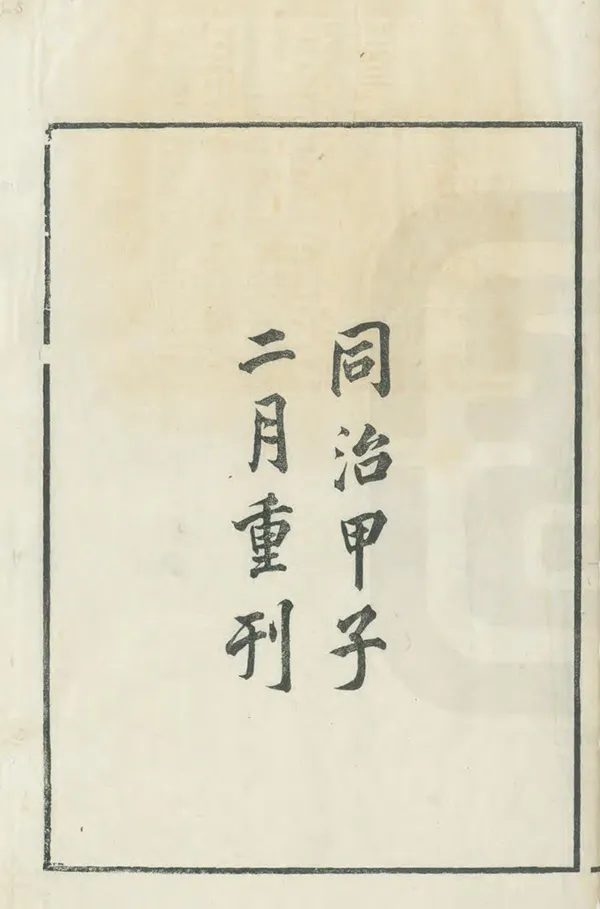 同治甲子
二月重刊